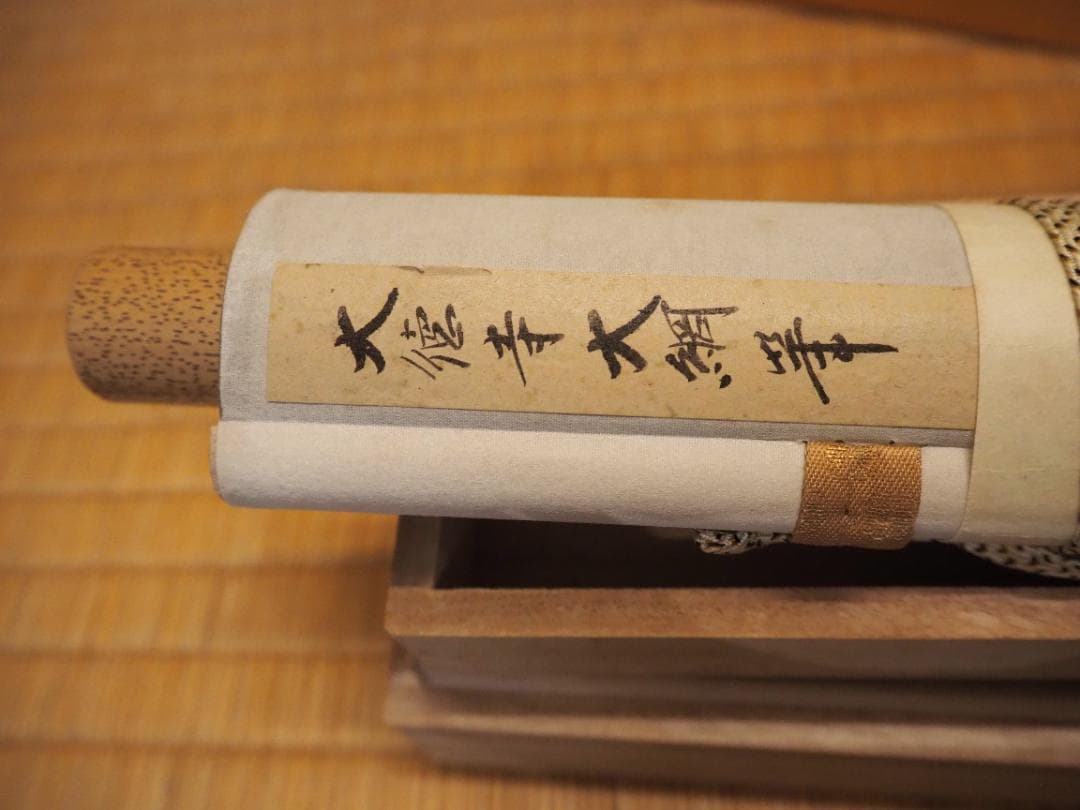 大徳寺大綱筆